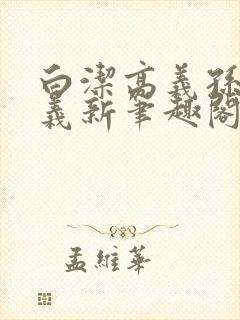 白潔高義孫
義新筆趣閣
孟維華